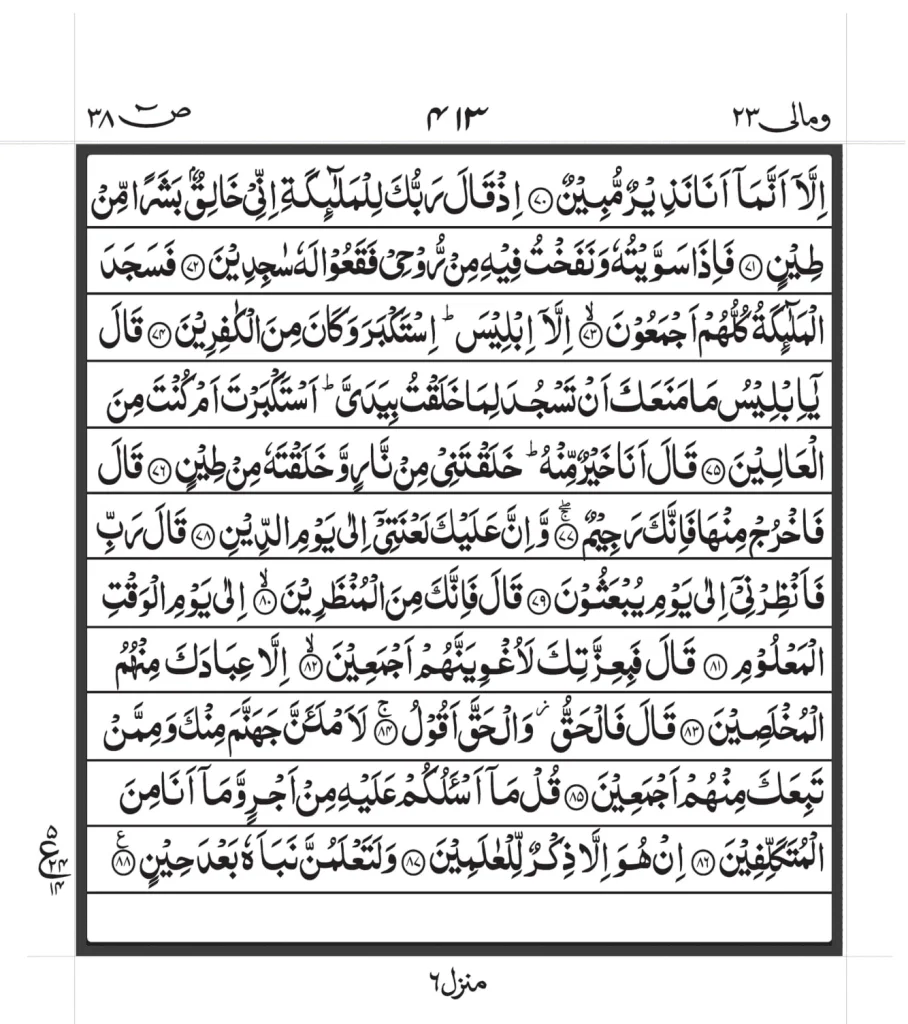 ومالی ٢٣ ٤١٣ صٓ ٣٨
اِلَّاۤ اَنَّمَاۤ اَنَا نَذِیْرٌ مُّبِیْنٌ ﴿٧٠﴾ اِذْ قَالَ رَبُّكَ لِلْمَلٰٓئِكَةِ اِنِّیْ خَالِقٌۢ بَشَرًا مِّنْ
طِیْنٍ ﴿٧١﴾ فَاِذَا سَوَّیْتُهٗ وَنَفَخْتُ فِیْهِ مِنْ رُّوْحِیْ فَقَعُوْا لَهٗ سٰجِدِیْنَ ﴿٧٢﴾ فَسَجَدَ
الْمَلٰٓئِكَةُ كُلُّهُمْ اَجْمَعُوْنَ ﴿٧٣﴾ۙ اِلَّاۤ اِبْلِیْسَ ؕ اِسْتَكْبَرَ وَكَانَ مِنَ الْكٰفِرِیْنَ ﴿٧٤﴾ قَالَ
یٰۤاِبْلِیْسُ مَا مَنَعَكَ اَنْ تَسْجُدَ لِمَا خَلَقْتُ بِیَدَیَّ ؕ اَسْتَكْبَرْتَ اَمْ كُنْتَ مِنَ
الْعَالِیْنَ ﴿٧٥﴾ قَالَ اَنَا خَیْرٌ مِّنْهُ ؕ خَلَقْتَنِیْ مِنْ نَّارٍ وَّخَلَقْتَهٗ مِنْ طِیْنٍ ﴿٧٦﴾ قَالَ
فَاخْرُجْ مِنْهَا فَاِنَّكَ رَجِیْمٌ ﴿٧٧﴾ۖۚ وَّاِنَّ عَلَیْكَ لَعْنَتِیْۤ اِلٰی یَوْمِ الدِّیْنِ ﴿٧٨﴾ قَالَ رَبِّ
فَاَنْظِرْنِیْۤ اِلٰی یَوْمِ یُبْعَثُوْنَ ﴿٧٩﴾ قَالَ فَاِنَّكَ مِنَ الْمُنْظَرِیْنَ ﴿٨٠﴾ۙ اِلٰی یَوْمِ الْوَقْتِ
الْمَعْلُوْمِ ﴿٨١﴾ قَالَ فَبِعِزَّتِكَ لَاُغْوِیَنَّهُمْ اَجْمَعِیْنَ ﴿٨٢﴾ۙ اِلَّا عِبَادَكَ مِنْهُمُ
الْمُخْلَصِیْنَ ﴿٨٣﴾ قَالَ فَالْحَقُّ ؗ وَالْحَقَّ اَقُوْلُ ﴿٨٤﴾ۚ لَاَمْلَـَٔنَّ جَهَنَّمَ مِنْكَ وَمِمَّنْ
تَبِعَكَ مِنْهُمْ اَجْمَعِیْنَ ﴿٨٥﴾ قُلْ مَاۤ اَسْـَٔلُكُمْ عَلَیْهِ مِنْ اَجْرٍ وَّمَاۤ اَنَا مِنَ
الْمُتَكَلِّفِیْنَ ﴿٨٦﴾ اِنْ هُوَ اِلَّا ذِكْرٌ لِّلْعٰلَمِیْنَ ﴿٨٧﴾ وَلَتَعْلَمُنَّ نَبَاَهٗ بَعْدَ حِیْنٍ ﴿٨٨﴾ع
٥
ع ٢٤
١٤
منزل ٦